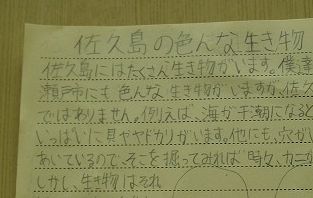 佐久島の色んな生き物
佐久島にはたくさん生き物がいます。僕達
瀬戸市にも色んな生き物がいますが、佐久
ではありません。例えば、海が干潮になると
いっぱいに貝ややドカリがいます。他にも、穴が
あいているので、そこを掘ってみれば時々、カニが
しかし、生き物はそれ